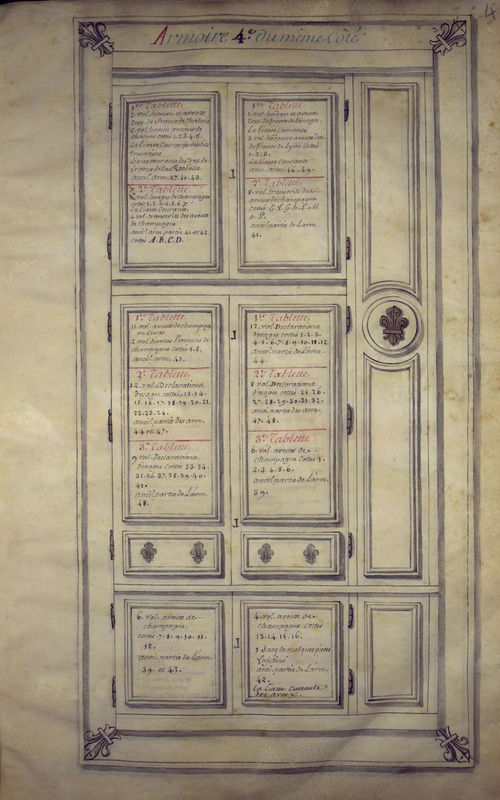 4
Armoire 4e du même Côté
1re Tablette
2. vol. hom. et aveux
cottes 1. 2. 3. 4. 5.
La liasse Courante
anc. arm. 37. 41. 43.
2e Tablette
cottes 1. 2. 3. 4. 5. 6. 7
La liasse Courante
4. vol. transcrits des aveux
de champagne
anc. arm. partie 41. et 42.
cottes A. B. C. D.
1re Tablette
La liasse Courante
de france de Lyon Cottés
1. 2. 3.
La liasse Courante
anc. arm. 46. 49.
2e Tablette
8. vol. transcrits des
aveux de champagne
cottés E. F. G. h. L. M
o. P.
anc. partie de L'arm.
41.
1re Tablette
11. vol. aveux de champagne
en Livres
2. vol. diverses Provinces de
champagne cottés 1. 2.
anc. arm. 43.
2e Tablette
12. vol. Déclarations
d'wages cottés 13. 14.
15. 16. 17. 18. 19. 20. 21.
22. 23. 24.
anc. partie des arm.
44 et 47.
3e Tablette
9 vol. Déclarations
d'wages cottés 33. 34.
35. 36. 37. 38. 39. 40.
41.
anc. partie de L'arm.
48.
1re Tablette
12. vol. Déclarations
d'wages cottés 1. 2. 3.
4. 5. 6. 7. 8. 9. 10. 11. 12.
anc. partie de L'arm.
44.
2e Tablette
8 vol. Déclarations
d'wages cottés 25. 26.
27. 28. 29. 30. 31. 32.
anc. partie des arm.
47. 48.
3e Tablette
6. vol. aveux de
champagne Cottés 1.
2. 3. 4. 5. 6.
anc. partie de L'arm.
39.
6. vol. aveux de
champagne
cottés 7. 8. 9. 10. 11.
12.
anc. partie de L'arm.
39. et 42.
4. vol. aveux de
champagne cottés
13. 14. 15. 16.
1 sacq de quelques pieces
fugitives
anc. partie de L'arm.
42.
la liasse courante
des aveux.